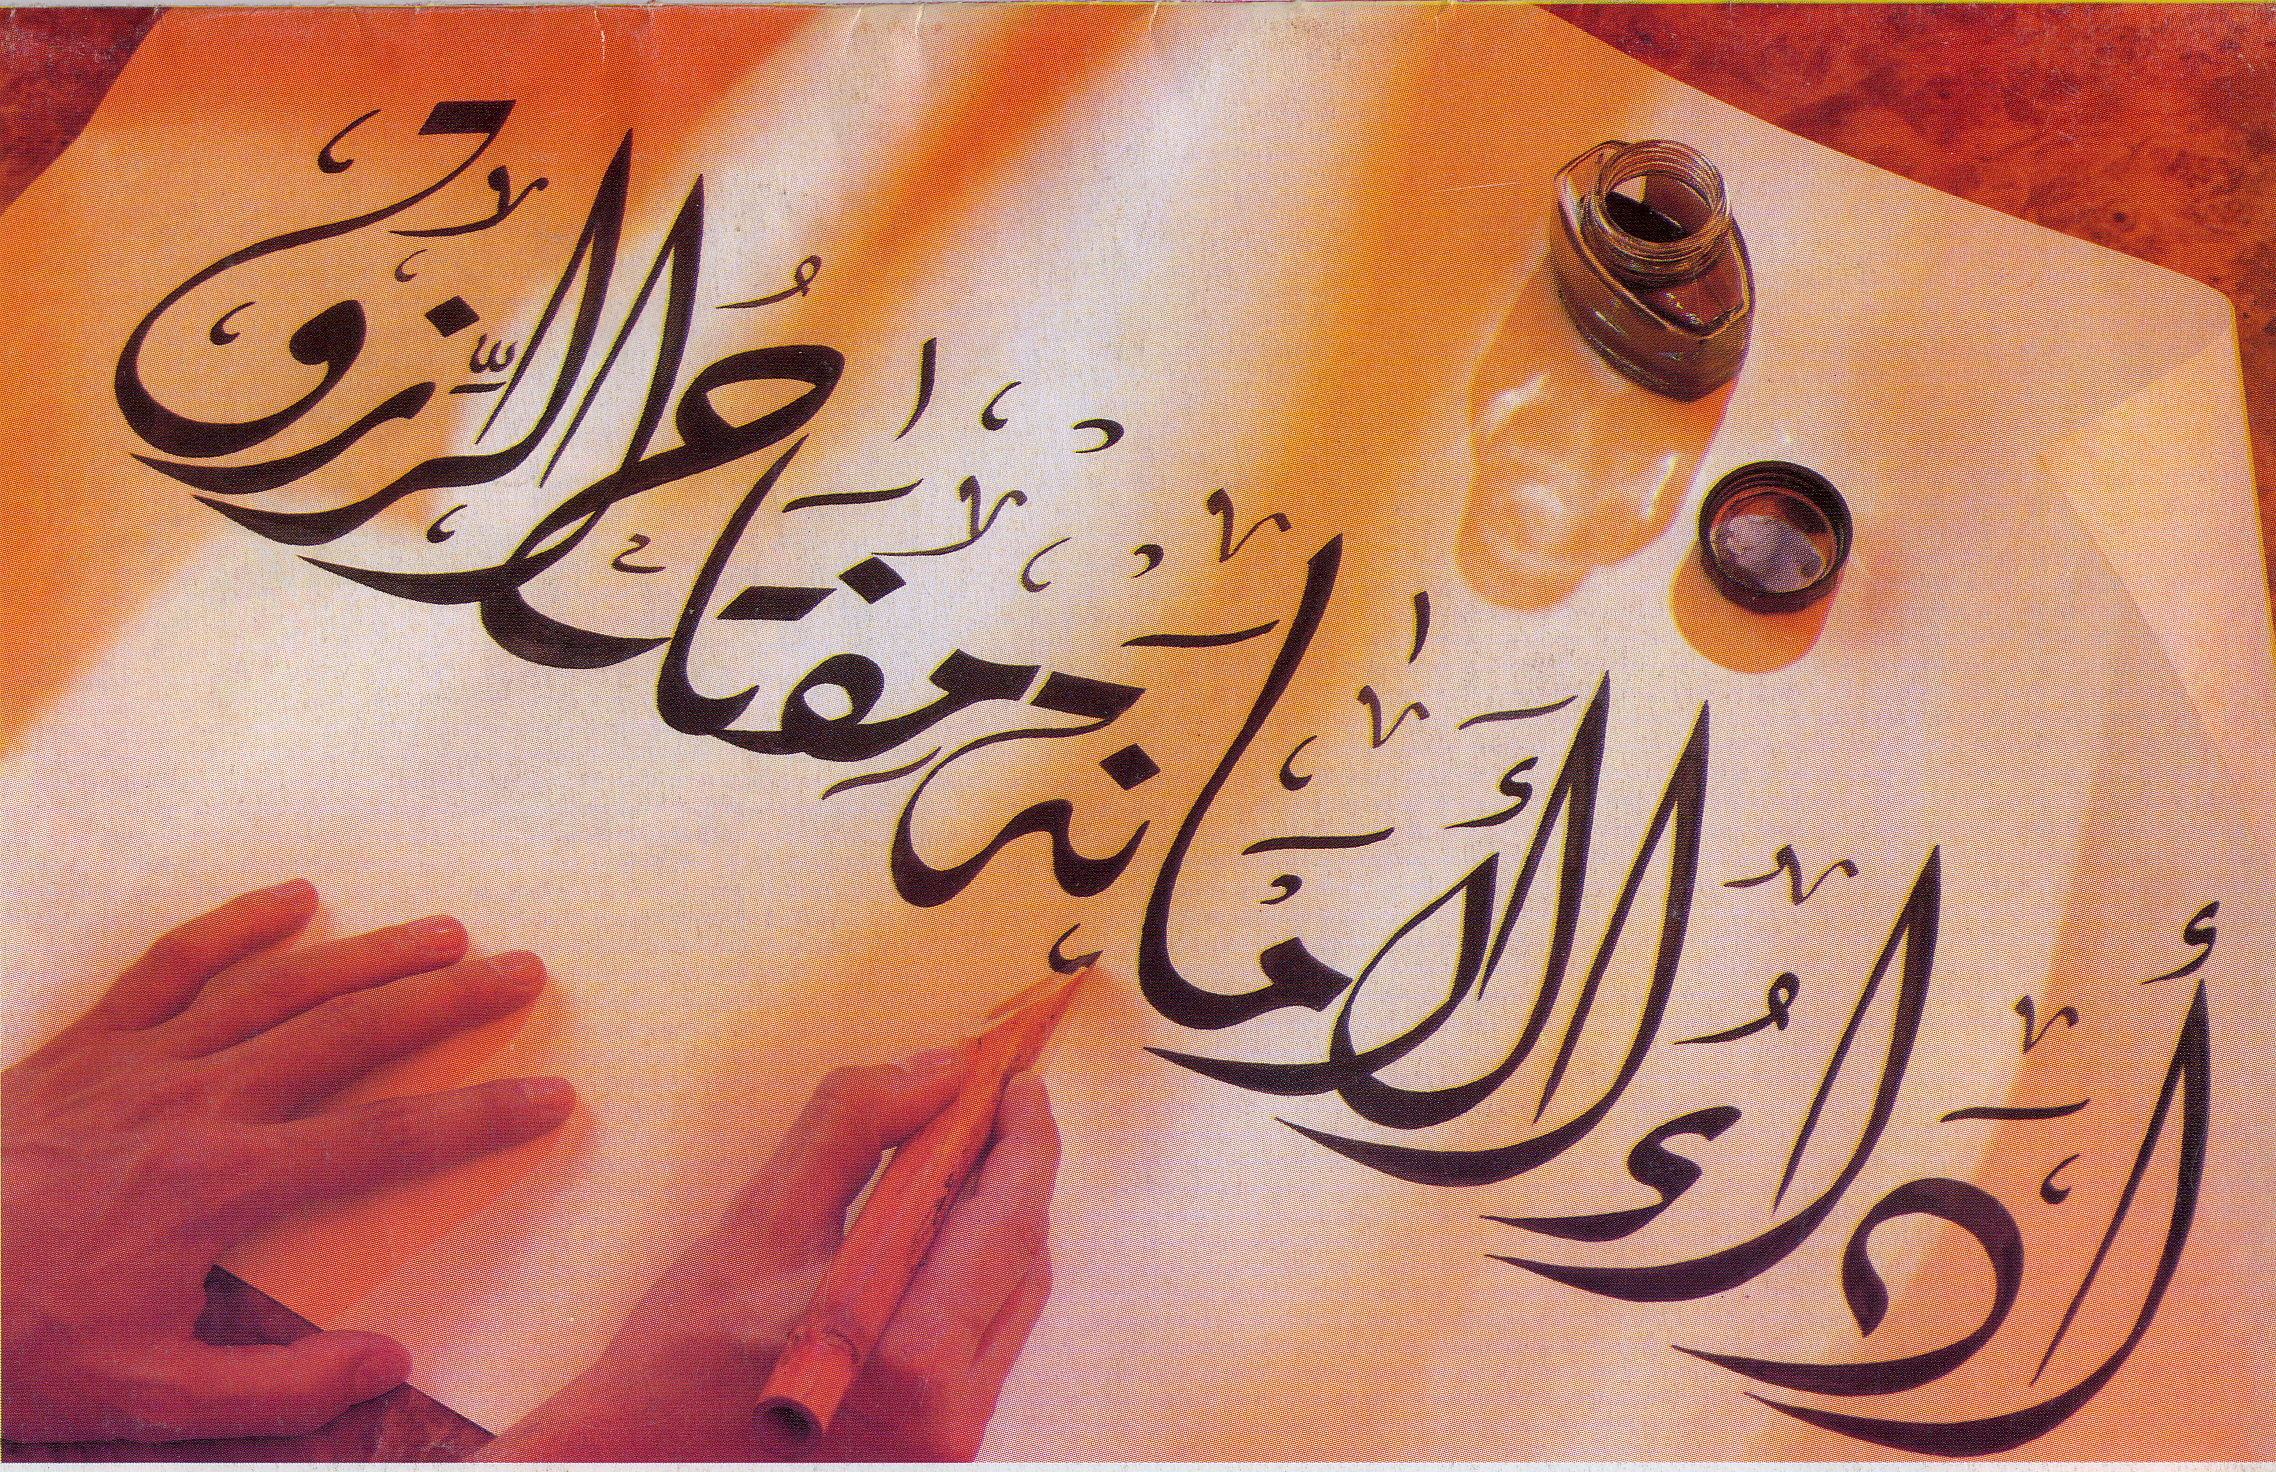 أَدَاءُ الْأَمَانَةِ مِفْتَاحُ الرِّزْقِ